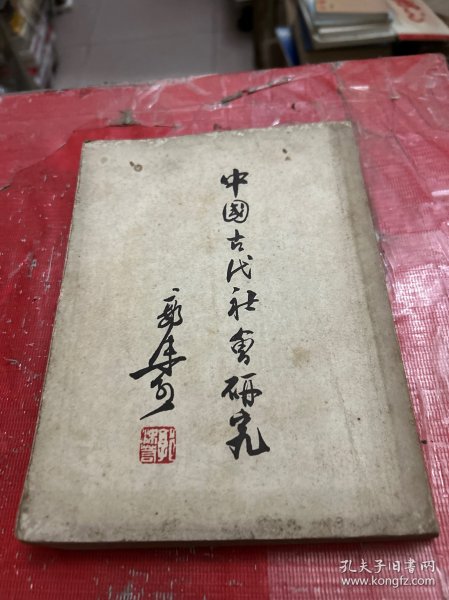 中國古代社會研究
郭沫若
郭沫若
孔夫子旧书网
www.kongfz.com